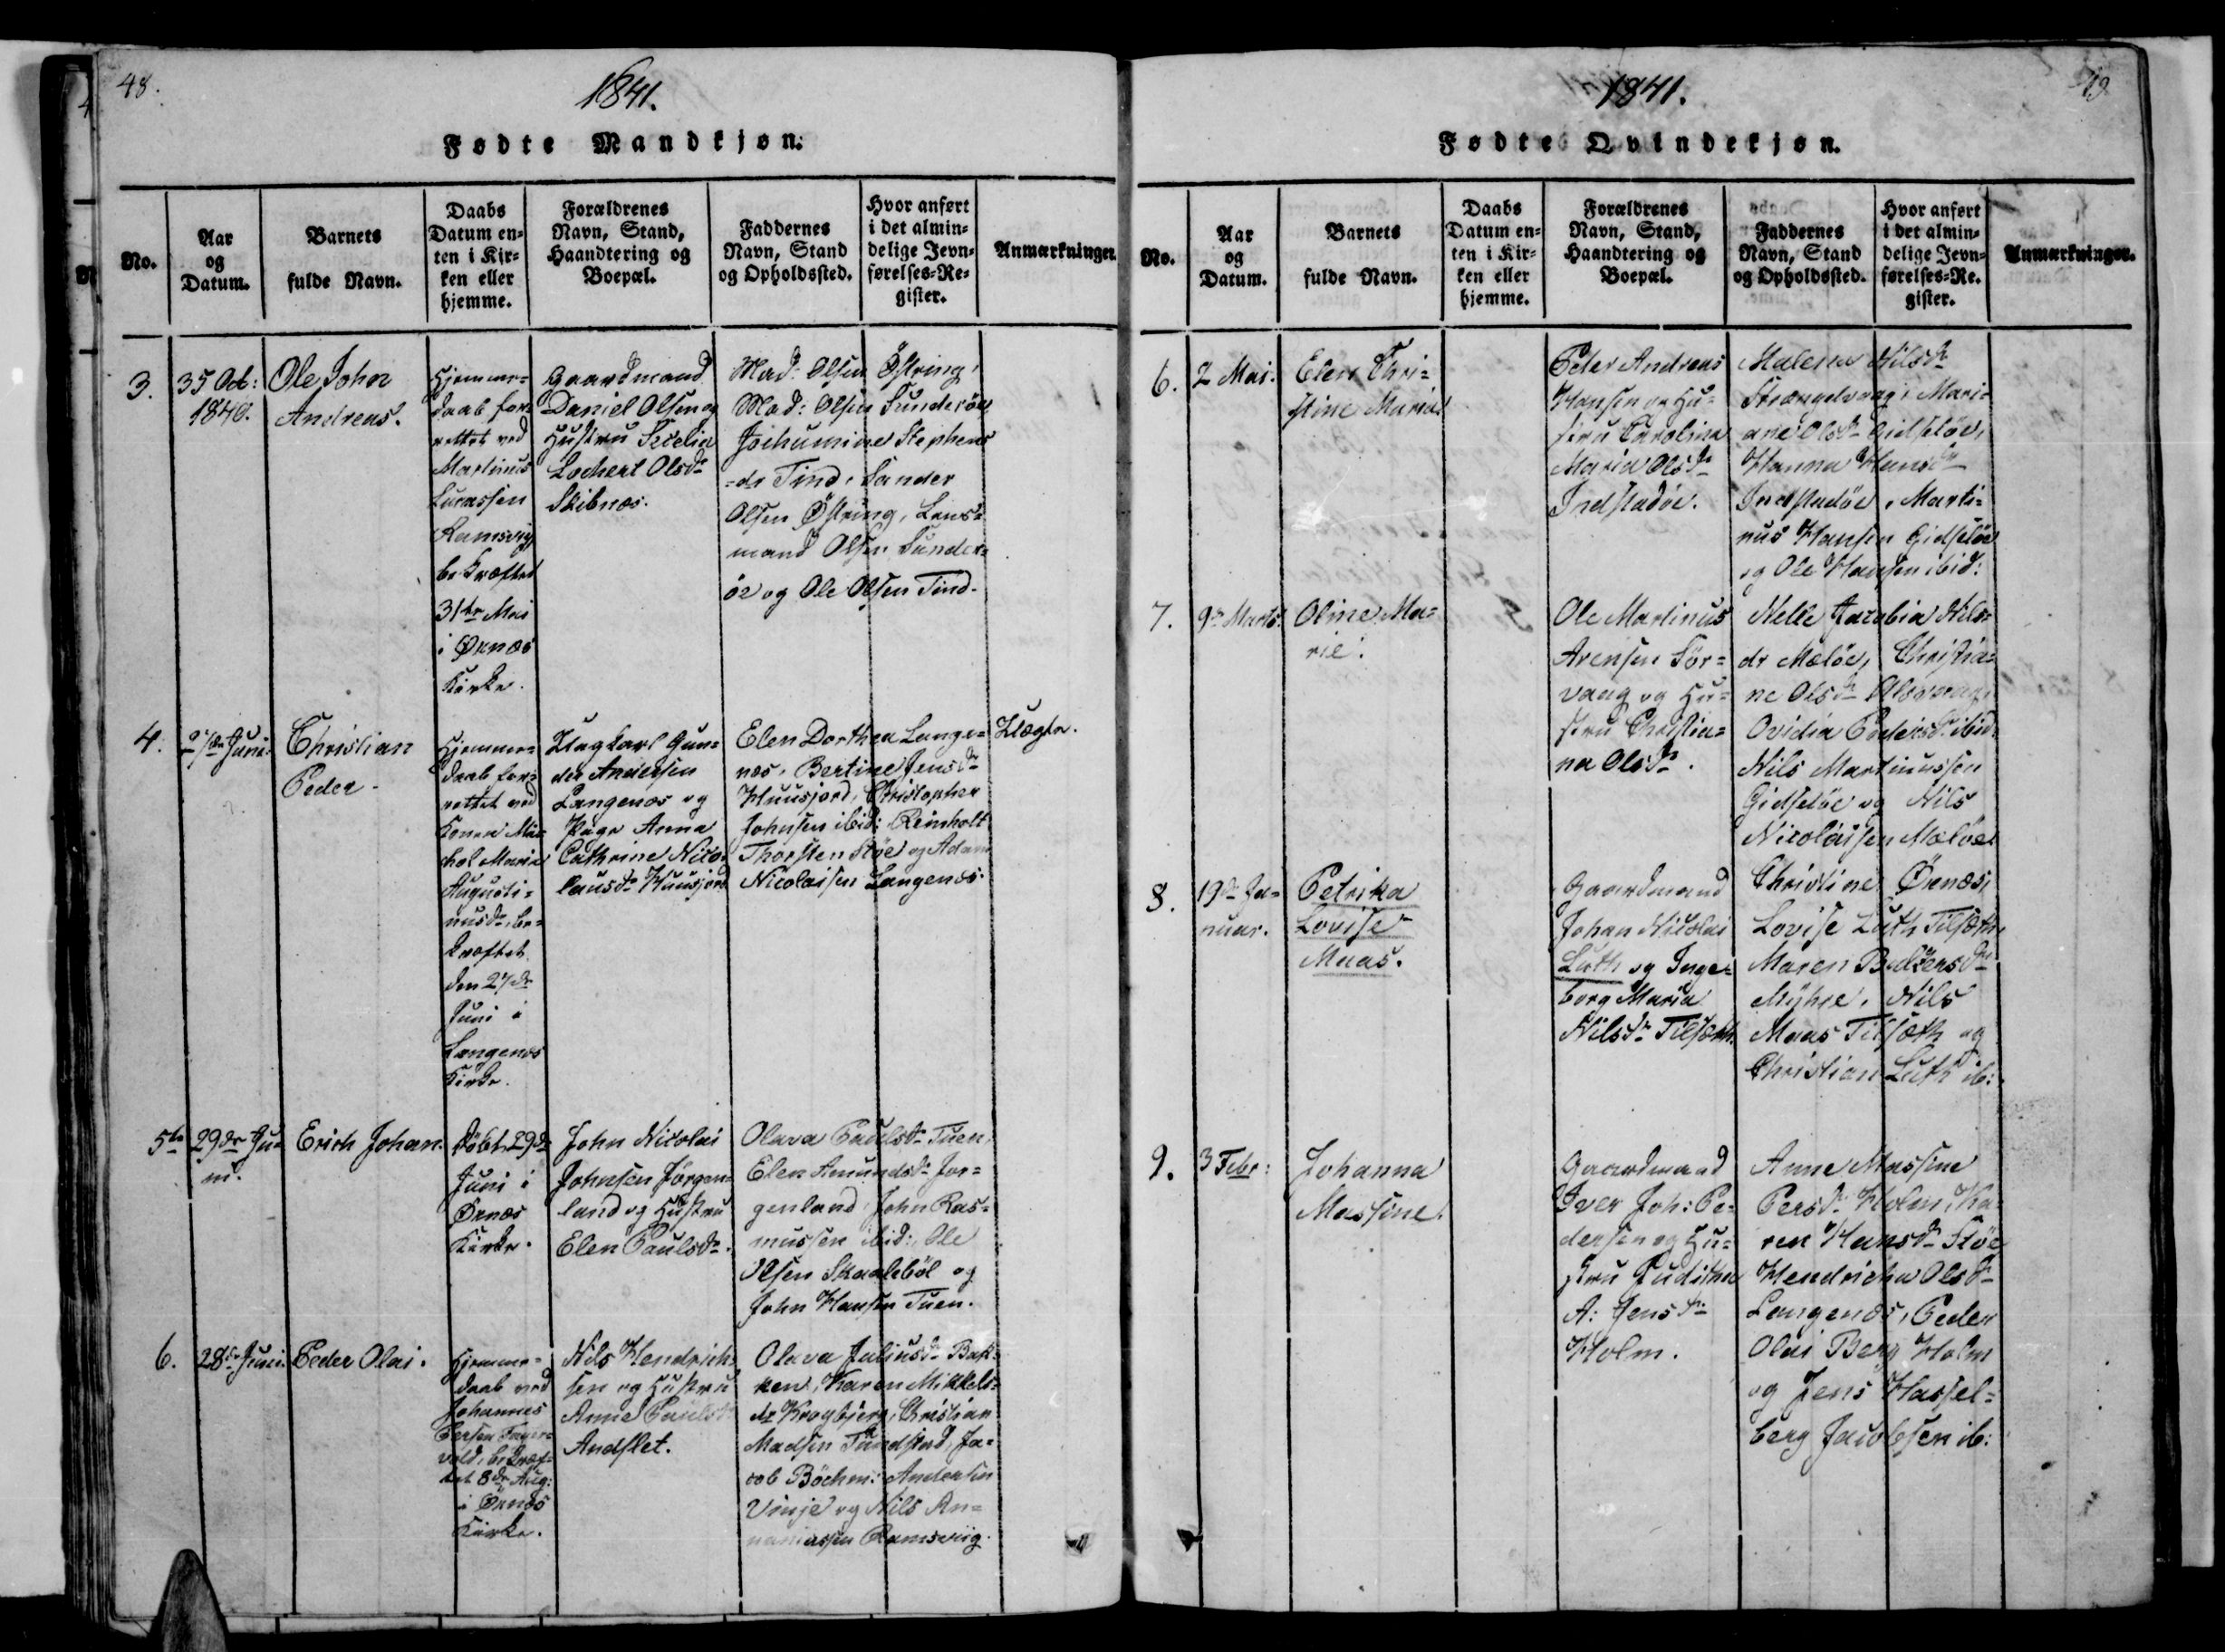 48.
1841.
Fødte Mandkjøn.
No.
Aar
og
Datum.
Barnets
fulde Navn.
Daabs
Datum en=
ten i Kir=
ken eller
hjemme.
Forældrenes
Navn, Stand,
Haandtering og
Boepæl.
Faddernes
Navn, Stand
og Opholdssted.
Hvor anført
i det almin=
delige Jevn=
førelses=Re=
gister.
Anmærkninger.
3.
35 Oct:
1840.
Ole John
Andreas.
Hjemme=
daab for=
rettet ved
Martinus
Lucassen
Ramsvig
bekræftet
31te Mai
i Øxnæs
Kirke.
Gaardmand
Daniel Olsen og
Hustru Secelia
Lochert Olsdr
Skibnæs.
Mad: Olsen Östring,
Mad: Olsen Sunderöe
Jochumine Stephens
=dr Tind, Sander
Olsen Östring, Lens=
mand Olsen Sunder=
öe og Ole Olsen Tind.
4.
27de Juni.
Christian
Peder.
Hjemme=
daab for=
rettet ved
Konen
Maria
Augusti=
nusdr, be=
kræftet
den 27de
Juni i
Langenæs
Kirke.
Ungkarl Gun=
der Andersen
Langenæs og
Pige Anna
Cathrine Nico=
lausdr Kuusjord
Elen Dorthea Lange=
næs, Bertine Jensdr
Kuusjord, Christopher
Johnsen ibid: Reinholt
Thorsten Stöe og Adam
Nicolaisen Langenæs.
Uægte.
5te
29de Ju=
ni.
Erich Johan.
Döbt 29de
Juni i
Öxnæs
Kirke.
John Nicolai
Johnsen Jörgen=
land og Hustru
Elen Paulsdr.
Olava Paulsdr Tuen,
Elen Amundsdr Jör=
genland, John Ras=
mussen ibid:, Ole
Olsen Skaaleböl og
John Hansen Tuen.
6.
28de Juni.
Peder Olai.
Hjemme=
daab ved
Johannes
Persen Fager=
vold, bekræf=
tet 8de Aug:
i Öxnæs
Kirke.
Nils Hendrich=
sen og Hustru
Anne Paulsdr
Andslet.
Olava Juliusdr Bak=
ken, Karen Mikkels=
dr Krogbjerg, Christian
Madsen Tundstad, Ja=
cob Böckm: Andersen
Vinje og Nils An=
naniassen Ramsviig.
1841.
Fødte Qvindekjøn.
No.
Aar
og
Datum.
Barnets
fulde Navn.
Daabs
Datum en=
ten i Kir=
ken eller
hjemme.
Forældrenes
Navn, Stand,
Haandtering og
Boepæl.
Faddernes
Navn, Stand
og Opholdssted.
Hvor anført
i det almin=
delige Jevn=
førelses=Re=
gister.
Anmærkninger.
6.
2 Mai.
Elen Chri=
stine Maria.
Peter Andreas
Hansen og Hu=
stru Carolina
Maria Olsdr
Indstadöe.
Malena Nilsdr
Strængelvaag, Mari=
ane Olsdr Gidslöe,
Hanna Hansdr
Indstadöe, Marti=
nus Hansen Gidslöe
og Ole Hansen ibid:
7.
9de Marts.
Oline Ma=
rie.
Ole Martinus
Arensen Sör=
vaag og Hu=
stru Christia=
na Olsdr.
Nelle Jacobia Nils=
dr Mælöe, Christia=
ne Olsdr
Ovidia Pedersdr ibid:
Nils Martinussen
Gidslöe og Nils
Nicolaisen Mælöe
8.
19de Ja=
nuar.
Petrika
Lovise
Maas.
Gaardmand
Johan Nicolai
Luth og Inge=
borg Maria
Nilsdr Tilsæth.
Christine Öxnæs,
Lovise Luth Tilsæth,
Maren Baltzersdr
Myhre, Nils
Maas Tilsæth og
Christian Luth ib:
9.
3 Febr:
Johanna
Massine.
Gaardmand
Iver Joh: Pe=
dersen og Hu=
stru Judithe
A: Jensdr
Holm.
Anne Massine
Persdr Holm, Ka=
ren Hansdr Stöe
Hendricha Olsdr
Langenæs, Peder
Olai Berg Holm
og Jens Hassel=
berg Jacobsen ib: